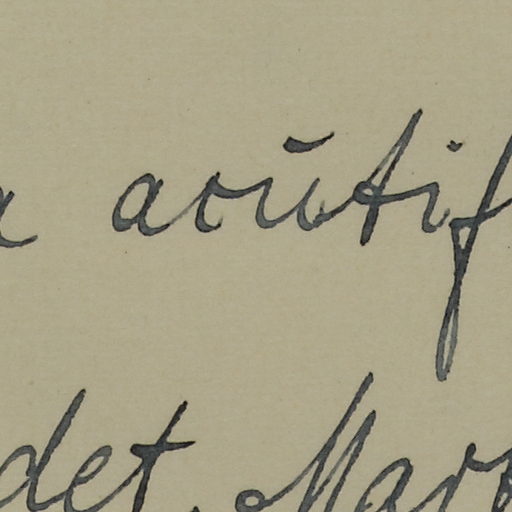 a acutif
det. Mar